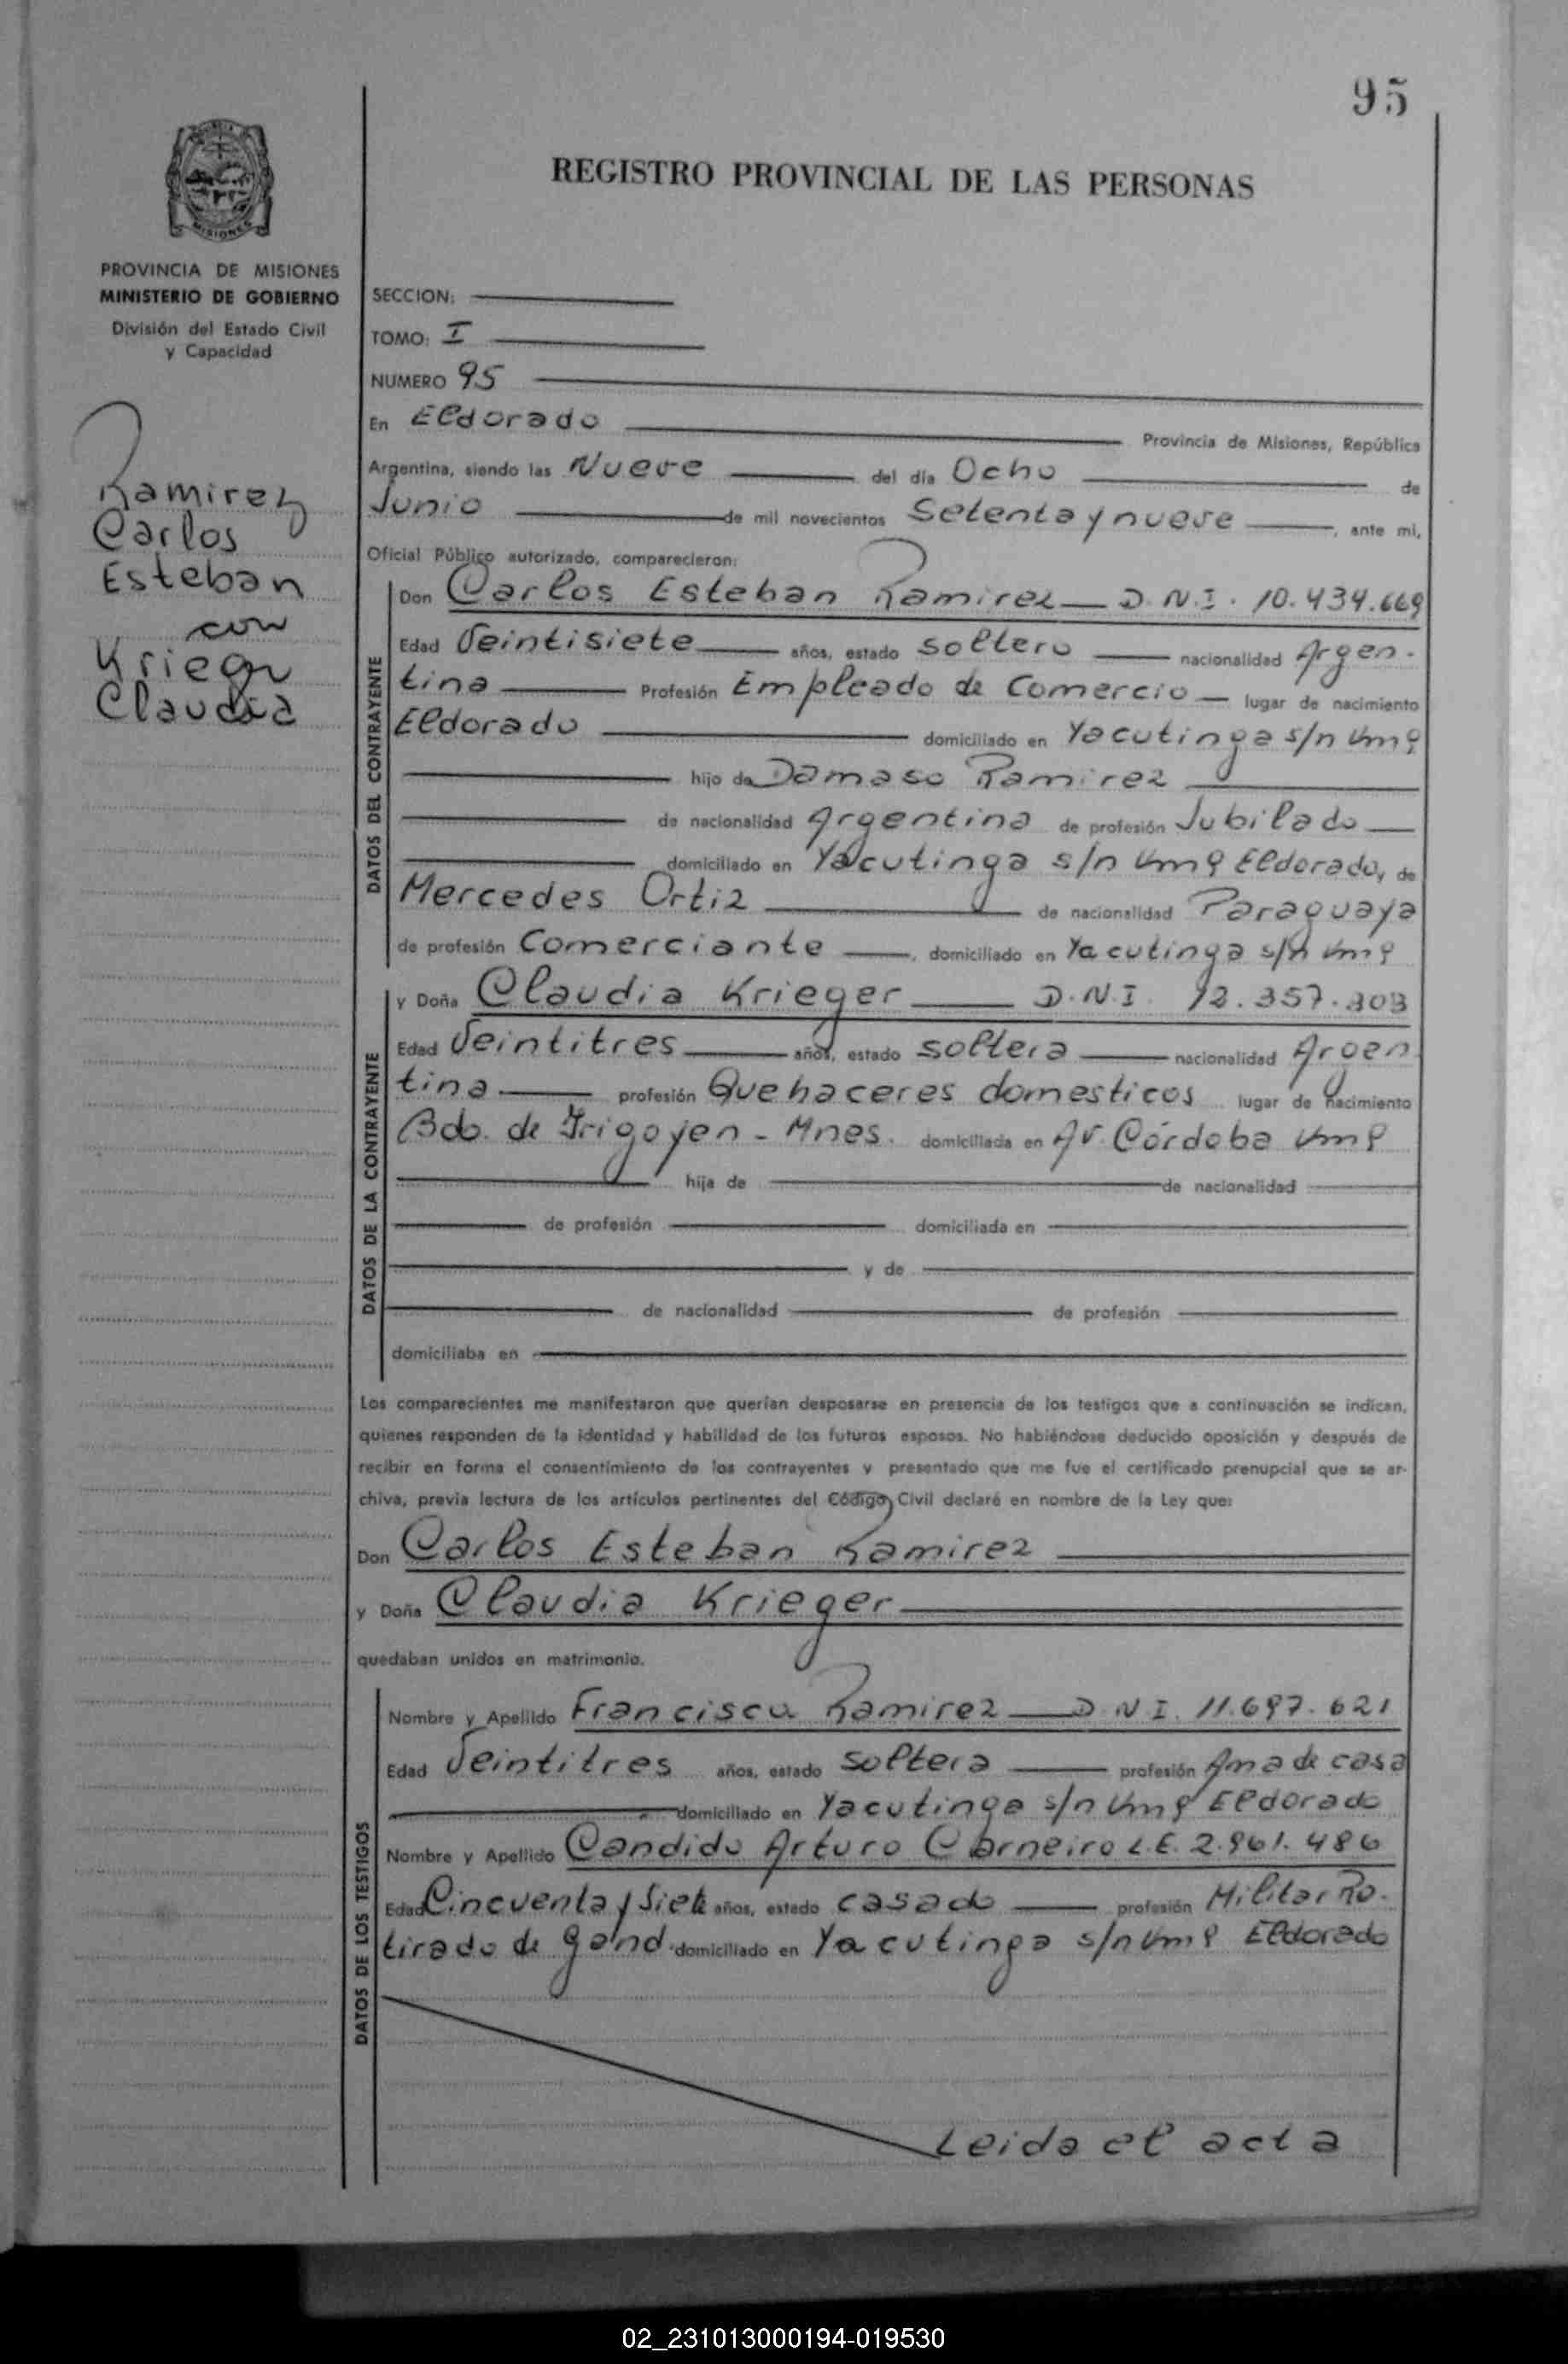 95
REGISTRO PROVINCIAL DE LAS PERSONAS
MISIONES
PROVINCIA DE MISIONES
MINISTERIO DE GOBIERNO
División del Estado Civil
y Capacidad
Ramirez
Carlos
Esteban
con
Claudia
SECCION:
TOMO: I
NUMERO 95
En Eldorado Provincia de Misiones, República
Argentina, siendo las Nueve del día Ocho de
Junio de mil novecientos Setenta y nueve, ante mi,
Oficial Público autorizado, comparecieron:
DATOS DEL CONTRAYENTE
Don Carlos Esteban Ramirez D.N.I. 10.434.669
Edad Veintisiete años, estado soltero nacionalidad Argen-
tina Profesión Empleado de Comercio lugar de nacimiento
Eldorado domiciliado en Yacutinga s/n km 9
hijo de Damaso Ramirez
de nacionalidad Argentina de profesión Jubilado
domiciliado en Yacutinga s/n km 9 Eldorado, de
Mercedes Ortiz de nacionalidad Paraguaya
de profesión Comerciante, domiciliado en Yacutinga s/n km 9
DATOS DE LA CONTRAYENTE
y Doña Claudia Krieger D.N.I. 12.357.303
Edad Veintitres años, estado soltera nacionalidad Argen
tina profesión Quehaceres domesticos lugar de nacimiento
Bdo. de Irigoyen - Mnes. domiciliada en Av. Córdoba km 9
hija de de nacionalidad
de profesión domiciliada en
y de
de nacionalidad de profesión
domiciliaba en
Los comparecientes me manifestaron que querían desposarse en presencia de los testigos que a continuación se indican,
quienes responden de la identidad y habilidad de los futuros esposos. No habiéndose deducido oposición y después de
recibir en forma el consentimiento de los contrayentes y presentado que me fue el certificado prenupcial que se ar-
chiva, previa lectura de los artículos pertinentes del Código Civil declaré en nombre de la Ley que:
Don Carlos Esteban Ramirez
y Doña Claudia Krieger
quedaban unidos en matrimonio.
DATOS DE LOS TESTIGOS
Nombre y Apellido Francisca Ramirez D.N.I. 11.697.621
Edad Veintitres años, estado soltera profesión Ama de casa
domiciliado en Yacutinga s/n km 9 Eldorado
Nombre y Apellido Candido Arturo Carneiro L.E. 2.961.486
Edad Cincuenta y Siete años, estado casado profesión Militar Re-
tirado de Gend. domiciliado en Yacutinga s/n km 9 Eldorado
Leida el acta
02_231013000194-019530